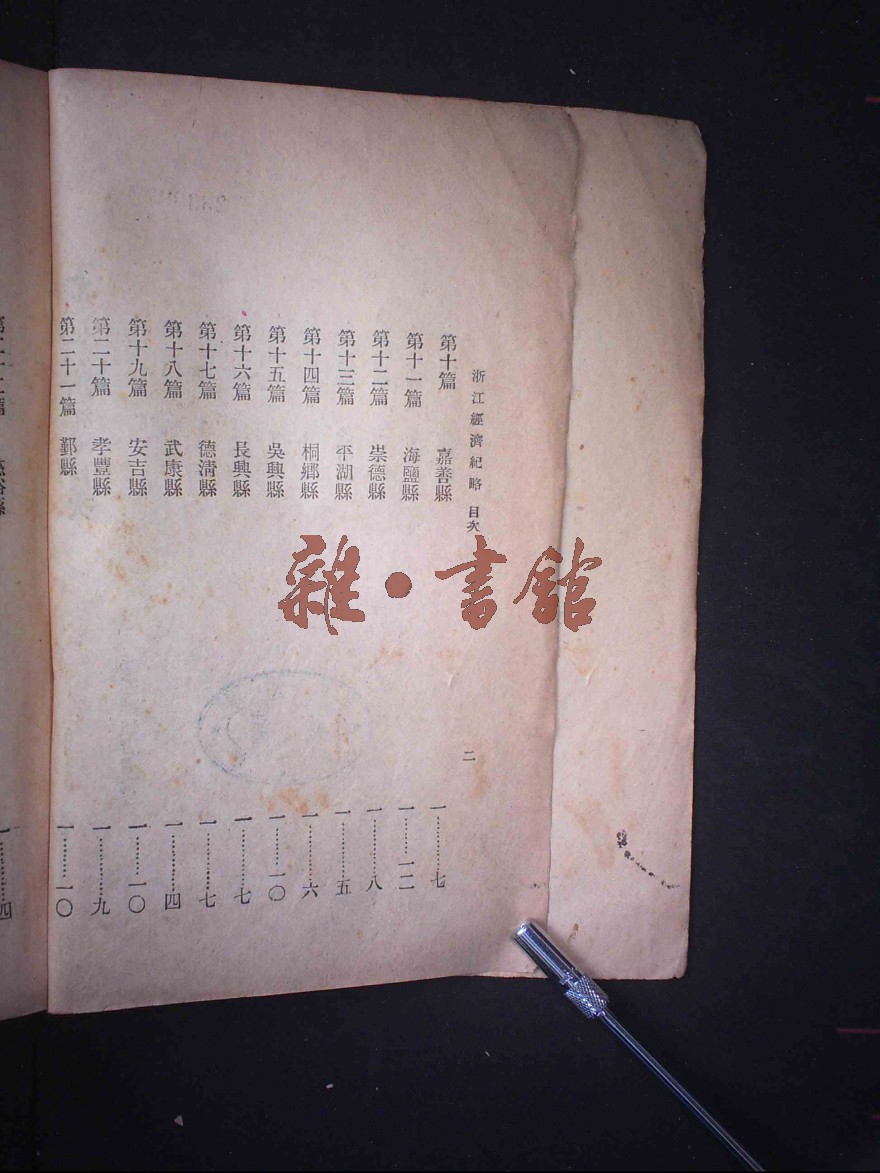 浙江經濟紀略 目次
二
第十篇 嘉善縣 一………七
第十一篇 海鹽縣 一………一二
第十二篇 崇德縣 一………八
第十三篇 平湖縣 一………五
第十四篇 桐鄉縣 一………六
第十五篇 吳興縣 一………一〇
第十六篇 長興縣 一………七
第十七篇 德清縣 一………七
第十八篇 武康縣 一………四
第十九篇 安吉縣 一………一〇
第二十篇 孝豐縣 一………九
第二十一篇 鄞縣 一………一〇
雜·書館